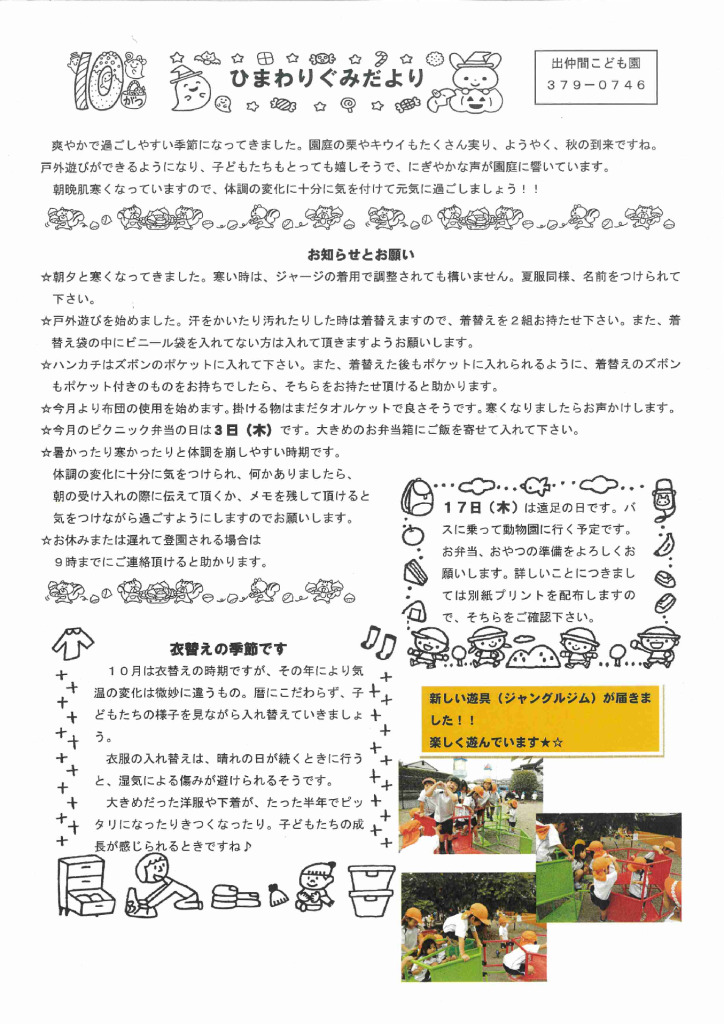 10
がつ
ひまわりぐみだより
出仲間こども園
379－0746
爽やかで過ごしやすい季節になってきました。園庭の栗やキウイもたくさん実り、ようやく、秋の到来ですね。
戸外遊びができるようになり、子どもたちもとっても嬉しそうで、にぎやかな声が園庭に響いています。
朝晩肌寒くなっていますので、体調の変化に十分に気を付けて元気に過ごしましょう！！
お知らせとお願い
☆朝夕と寒くなってきました。寒い時は、ジャージの着用で調整されても構いません。夏服同様、名前をつけられて
下さい。
☆戸外遊びを始めました。汗をかいたり汚れたりした時は着替えますので、着替えを２組お持たせ下さい。また、着
替え袋の中にビニール袋を入れてない方は入れて頂きますようお願いします。
☆ハンカチはズボンのポケットに入れて下さい。また、着替えた後もポケットに入れられるように、着替えのズボン
もポケット付きのものをお持ちでしたら、そちらをお持たせ頂けると助かります。
☆今月より布団の使用を始めます。掛ける物はまだタオルケットで良さそうです。寒くなりましたらお声かけします。
☆今月のピクニック弁当の日は３日（木）です。大きめのお弁当箱にご飯を寄せて入れて下さい。
☆暑かったり寒かったりと体調を崩しやすい時期です。
体調の変化に十分に気をつけられ、何かありましたら、
朝の受け入れの際に伝えて頂くか、メモを残して頂けると
気をつけながら過ごすようにしますのでお願いします。
☆お休みまたは遅れて登園される場合は
９時までにご連絡頂けると助かります。
１７日（木）は遠足の日です。バ
スに乗って動物園に行く予定です。
お弁当、おやつの準備をよろしくお
願いします。詳しいことにつきまし
ては別紙プリントを配布しますの
で、そちらをご確認下さい。
衣替えの季節です
１０月は衣替えの時期ですが、その年により気
温の変化は微妙に違うもの。暦にこだわらず、子
どもたちの様子を見ながら入れ替えていきましょ
う。
衣服の入れ替えは、晴れの日が続くときに行う
と、湿気による傷みが避けられるそうです。
大きめだった洋服や下着が、たった半年でピッ
タリになったりきつくなったり。子どもたちの成
長が感じられるときですね♪
新しい遊具（ジャングルジム）が届きま
した！！
楽しく遊んでいます★☆